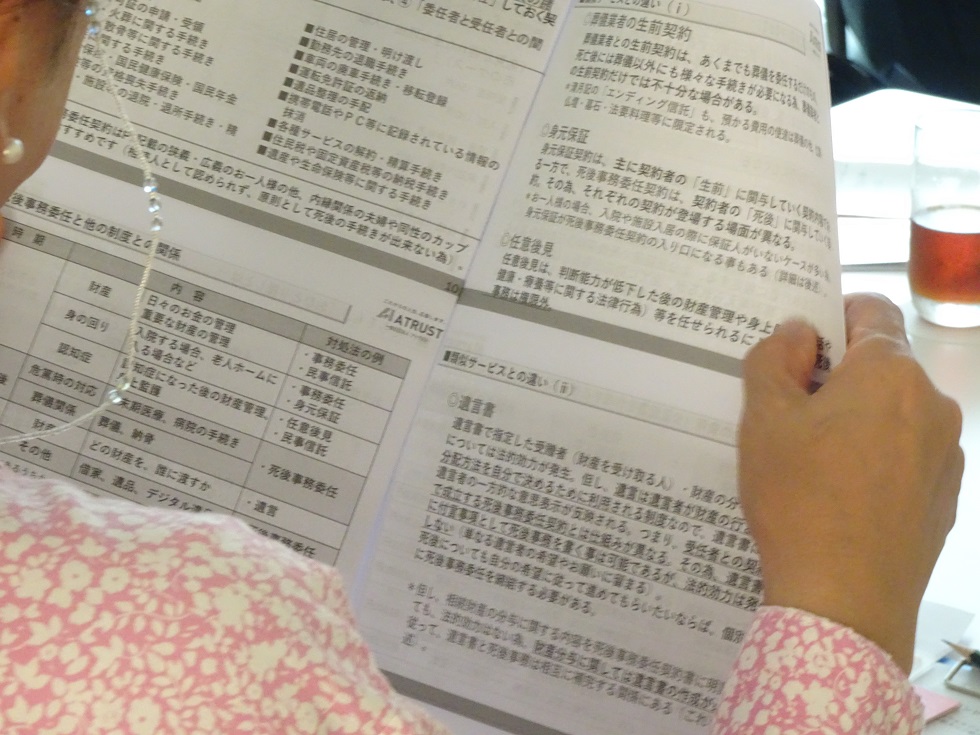 ④「委任者と受任者との間
しておく契
可証の申請・受領
火葬に関する手続き
散骨等に関する手続き
関する手続き
・国民健康保険・国民年金
格喪失手続き
の退院・退所手続き・精
■住居の管理・明け渡し
■勤務先の退職手続き
■車両の廃車手続き・移転登録
■運転免許証の返納
■遺品整理の手配
■携帯電話やPC等に記録されている情報の
抹消
■各種サービスの解約・精算手続き
■住民税や固定資産税等の納税手続き
■遺産や生命保険等に関する手続き
記載の狭義・広義のお一人様の他、内縁関係の夫婦や同性のカップ
すすめです（相続人として認められず、原則として死後の手続きが出来ない為）。
10
後事務委任と他の制度との関係
時期
内容
対処法の例
財産
日々のお金の管理
重要な財産の管理
・事務委任
・民事信託
身の回り
入院する場合、老人ホームに
入る場合など
・事務委任
・身元保証
認知症
認知症になった後の財産管理、
監護
・任意後見
・民事信託
危篤時の対応
末期医療、病院の手続き
葬儀関係
葬儀、納骨
・死後事務委任
財産
どの財産を、誰に渡すか
・遺言
その他
借家、遺品、デジタル遺
ATRUST
との違い（ⅰ）
◎葬儀業者の生前契約
葬儀業者との生前契約は、あくまでも葬儀を委任する
死亡後には葬儀以外にも様々な手続きが必要になる為、葬儀業者
の生前契約だけでは不十分な場合がある。
「エンディング信託」も、預かる費用の使途は葬儀代金、
仏壇・墓石・法要料理等に限定される。
◎身元保証
身元保証契約は、主に契約者の「生前」に関与していく契約
る一方で、死後事務委任契約は、契約者の「死後」に関与して
約。その為、それぞれの契約が登場する場面が異なる。
*お一人様の場合、入院や施設入居の際に保証人がいないケースが多い
身元保証が死後事務委任契約の入り口になる事もある（詳細は後述）。
◎任意後見
任意後見は、判断能力が低下した後の財産管理や身上
健康・療養等に関する法律行為）等を任せられるに
事務は権限外。
■類似サービスとの違い（ⅱ）
◎遺言書
遺言書で指定した受贈者（財産を受け取る人）・財産の分
については法的効力が発生。但し、遺言は遺言者が財産の行
分配方法を自分で決めるために利用される制度なので、遺言書
遺言者の一方的な意思表示が反映される。つまり、受任者との契
で成立する死後事務委任契約とは仕組みが異なる。その為、遺言
に付言事項として死後事務を書く事は可能であるが、法的効力は発
しない（単なる遺言者の希望やお願いに留まる）。
死後についても自分の希望に従って進めてもらいたいならば、個別
に死後事務委任を締結する必要がある。
*但し、相続財産の分与に関する内容を死後事務委任契約書に明
ても、法的効力はない為、財産分与に関しては遺言書の作成が
従って、遺言書と死後事務は相互に補完する関係にある（これ
述）。